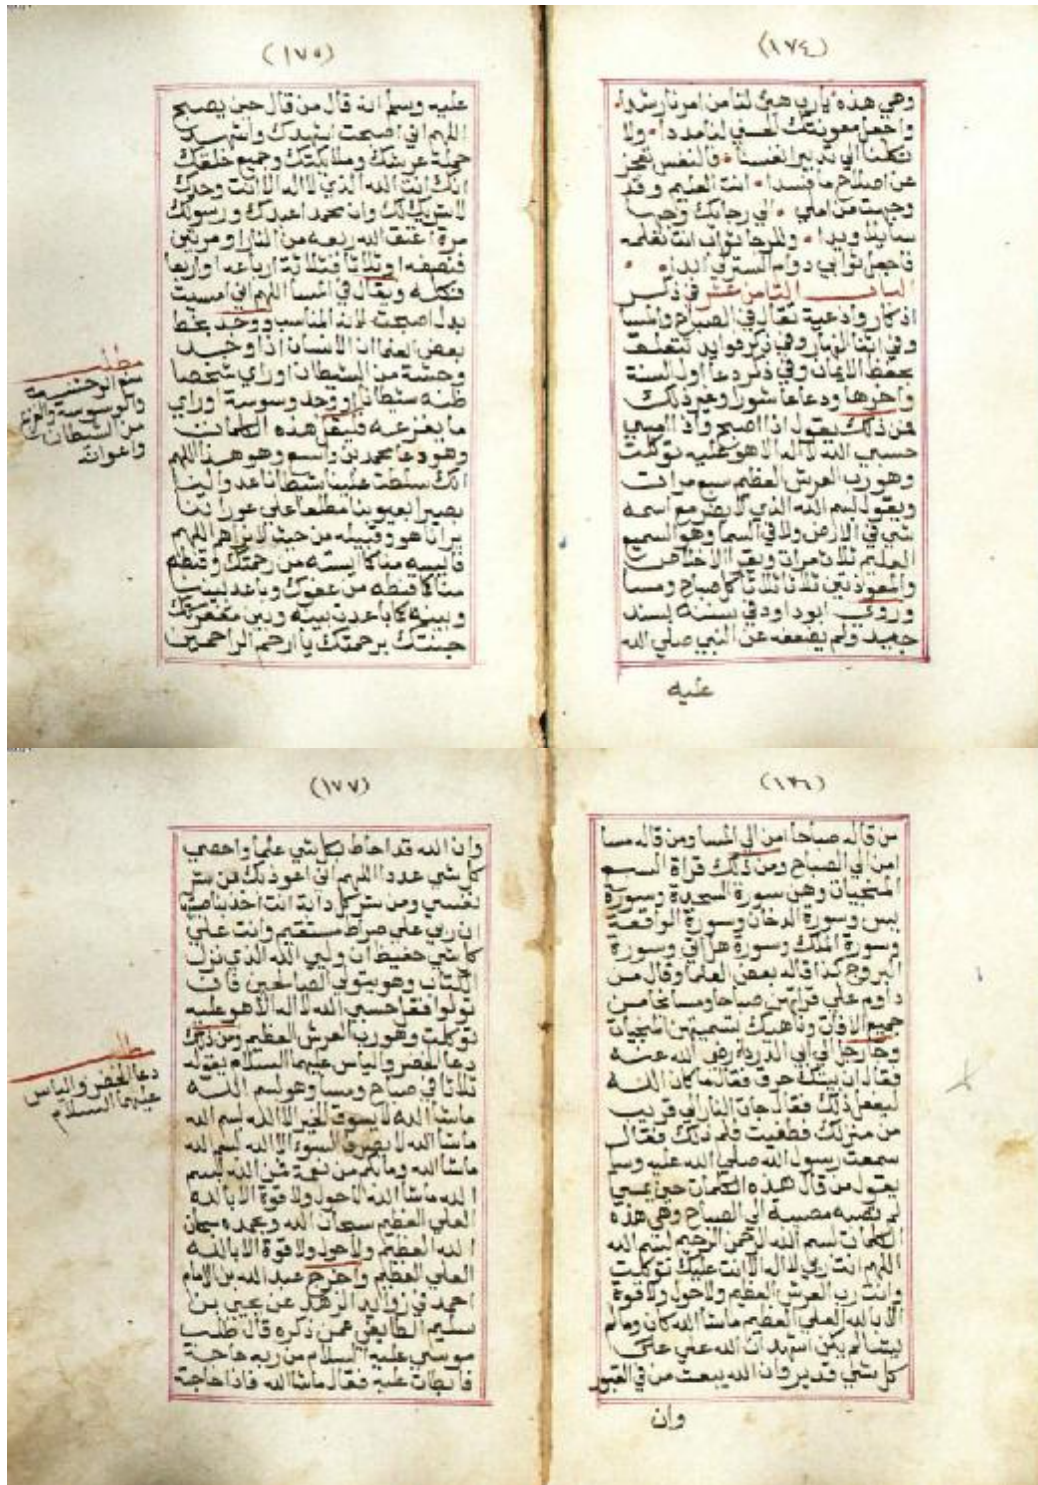 (١٧٤)
وهي هذه يارب هيئ لنا من امرنا رشدا
واجعل معونتك الحسني لنا مددا ولا
تكلنا الي تدبير انفسنا والنفس تعجز
عن اصلاح ما فسدا انت العليم وقد
وجهت من املي الي رجائك وجها
سائلا ويدا وللرجا ثواب انت تعلمه
فاجعل ثوابي دوام الستر لي ابدا
الباب الثامن عشر في ذكر
اذكار وادعية تقال في الصباح والمسا
وفي اثنا النهار وفي ذكر فوايد تتعلق
بحفظ الايمان وفي ذكر دعا اول السنة
واخرها ودعا عاشورا وغير ذلك
فمن ذلك يقول اذا اصبح واذا امسي
حسبي الله لا اله الا هو عليه توكلت
وهو رب العرش العظيم سبع مرات
ويقول بسم الله الذي لا يضر مع اسمه
شي في الارض ولا في السما وهو السميع
العليم ثلاث مرات ويقرا الاخلاص
والمعوذتين ثلاثا ثلاثا كل صباح ومسا
وروي ابو داود في سننه بسند
جيد ولم يضعفه عن النبي صلي الله
عليه
(١٧٥)
عليه وسلم انه قال من قال حين يصبح
اللهم اني اصبحت اشهدك واشهد
حملة عرشك وملايكتك وجميع خلقك
انك انت الله الذي لا اله الا انت وحدك
لا شريك لك وان محمدا عبدك ورسولك
مرة اعتق الله ربعه من النار او مرتين
فنصفه او ثلاثا فثلاثة ارباعه او اربعا
فكله ويقال في المسا اللهم اني امسيت
بدل اصبحت لانه المناسب ووجد بخط
بعض العلما ان الانسان اذا وجد
وحشة من الشيطان او راي شخصا
ظنه شيطانا او وجد وسوسة او راي
ما يفزعه فليقل هذه الكلمات
وهو دعا محمد بن واسع وهو هذا اللهم
انك سلطت علينا شيطانا عدوا لنا
بصيرا بعيوبنا مطلعا علي عوراتنا
يرانا هو وقبيله من حيث لا نراهم اللهم
فايسه منا كما ايسته من رحمتك وقنطه
منا كما قنطه من عفوك وباعد بيننا
وبينه كما باعدت بينه وبين مغفرتك
جنتك برحمتك يا ارحم الراحمين
مطلب
والوسوسة والفزع
من الشيطان
واعوانه
(١٧٦)
من قاله صباحا امن الي المسا ومن قاله مسا
امن الي الصباح ومن ذلك قراة السبع
المنجيات وهن سورة السجدة وسورة
يس وسورة الدخان وسورة الواقعة
وسورة الملك وسورة هل اتي وسورة
البروج كذا قاله بعض العلما وقال من
داوم علي قراتهن صباحا ومسا نجا من
جميع الافات وناهيك بتسميتهن المنجيات
وجا رجل الي ابي الدردا رضي الله عنه
فقال ان بيتك حرق فقال ما كان الله
ليفعل ذلك فقال جات النار الي قريب
من منزلك فطفيت فلم ذلك فقال
سمعت رسول الله صلي الله عليه وسلم
يقول من قال هذه الكلمات حين يمسي
لم تصبه مصيبة الي الصباح وهي هذه
الكلمات بسم الله الرحمن الرحيم بسم الله
اللهم انت ربي لا اله الا انت عليك توكلت
وانت رب العرش العظيم ولا حول ولا قوة
الا بالله العلي العظيم ماشا الله كان ومالم
يشا لم يكن اشهد ان الله علي
كل شي قدير وان الله يبعث من في القبور
وان
(١٧٧)
وان الله قد احاط بكل شي علما واحصي
كل شي عددا اللهم اني اعوذ بك من شر
نفسي ومن شر كل دابة انت اخذ بناصيتها
ان ربي علي صراط مستقيم وانت علي
كل شي حفيظ ان وليي الله الذي نزل
الكتاب وهو يتولي الصالحين فان
تولوا فقل حسبي الله لا اله الا هو عليه
توكلت وهو رب العرش العظيم ومن ذلك
دعا الخضر والياس عليهما السلام يقوله
ثلاثا في صباح ومسا وهو بسم الله
ماشا الله لا يسوق الخير الا الله بسم الله
ماشا الله لا يصرف السوء الا الله بسم الله
ماشا الله وما بكم من نعمة فمن الله بسم
الله ماشا الله لا حول ولا قوة الا بالله
العلي العظيم سبحان الله وبحمده سبحان
الله العظيم ولا حول ولا قوة الا بالله
العلي العظيم واخرج عبد الله بن الامام
احمد في زوايد الزهد عن يحيي بن
سليم الطايفي عمن ذكره قال طلب
موسي عليه السلام من ربه حاجة
فابطات عليه فقال ماشا الله فاذا حاجته
دعا الخضر والياس
عليهما السلام